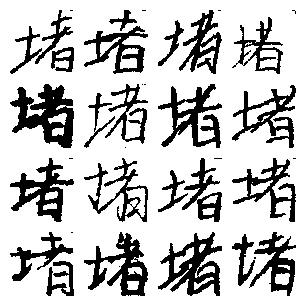 堵堵堵堵
堵堵堵堵
堵堵堵堵
堵堵堵堵